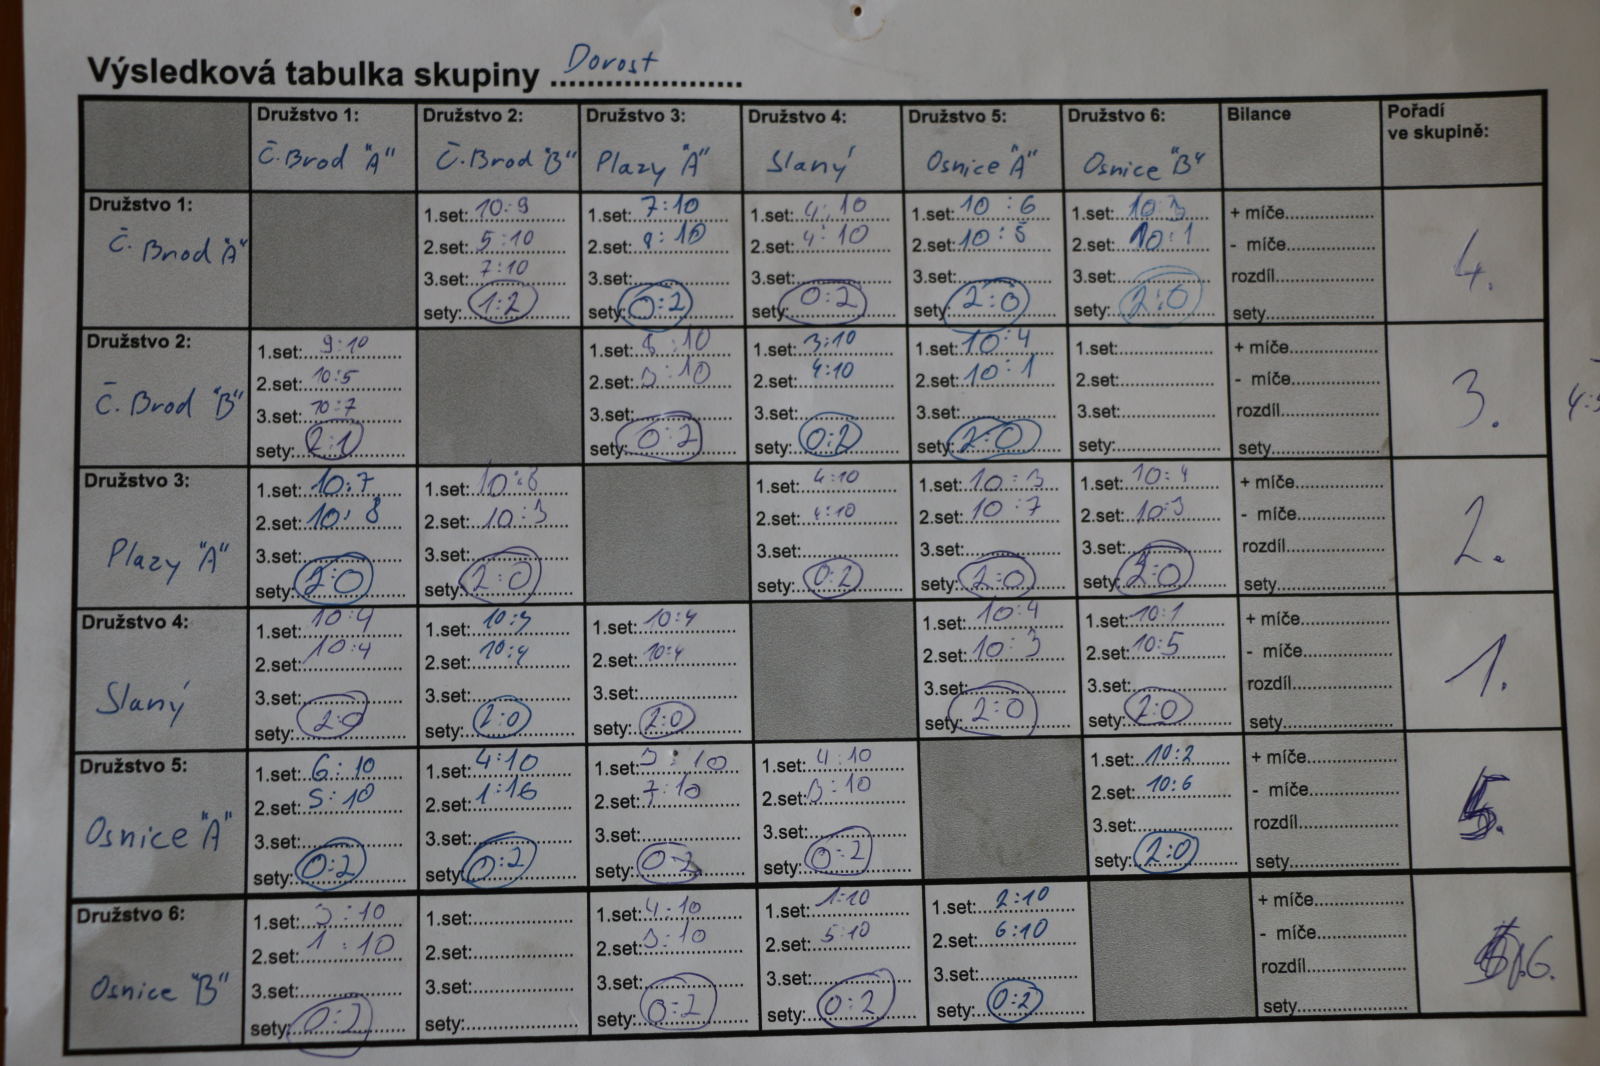 Výsledková tabulka skupiny Dorost
Družstvo 1: Družstvo 2: Družstvo 3: Družstvo 4: Družstvo 5: Družstvo 6: Bilance Pořadí ve skupině:
Č. Brod "A" Č. Brod "B" Plazy "A" Slaný Osnice "A" Osnice "B"
Družstvo 1:
Č. Brod "A"
1.set: 10:9 1.set: 7:10 1.set: 4:10 1.set: 10:6 1.set: 10:3 + míče
2.set: 5:10 2.set: 8:10 2.set: 4:10 2.set: 10:5 2.set: 10:1 - míče
3.set: 7:10 3.set: 3.set: 3.set: 3.set: rozdíl
sety: 1:2 sety: 0:2 sety: 0:2 sety: 2:0 sety: 2:0 sety
4.
Družstvo 2:
Č. Brod "B"
1.set: 9:10 1.set: 8:10 1.set: 3:10 1.set: 10:4 1.set: + míče
2.set: 10:5 2.set: 3:10 2.set: 4:10 2.set: 10:1 2.set: - míče
3.set: 10:7 3.set: 3.set: 3.set: 3.set: rozdíl
sety: 2:1 sety: 0:2 sety: 0:2 sety: 2:0 sety: sety
3.
Družstvo 3:
Plazy "A"
1.set: 10:7 1.set: 10:8 1.set: 4:10 1.set: 10:3 1.set: 10:4 + míče
2.set: 10:8 2.set: 10:3 2.set: 4:10 2.set: 10:7 2.set: 10:3 - míče
3.set: 3.set: 3.set: 3.set: 3.set: rozdíl
sety: 2:0 sety: 2:0 sety: 0:2 sety: 2:0 sety: 2:0 sety
2.
Družstvo 4:
Slaný
1.set: 10:4 1.set: 10:3 1.set: 10:4 1.set: 10:4 1.set: 10:1 + míče
2.set: 10:4 2.set: 10:4 2.set: 10:4 2.set: 10:3 2.set: 10:5 - míče
3.set: 3.set: 3.set: 3.set: 3.set: rozdíl
sety: 2:0 sety: 2:0 sety: 2:0 sety: 2:0 sety: 2:0 sety
1.
Družstvo 5:
Osnice "A"
1.set: 6:10 1.set: 4:10 1.set: 3:10 1.set: 4:10 1.set: 10:2 + míče
2.set: 5:10 2.set: 1:10 2.set: 7:10 2.set: 3:10 2.set: 10:6 - míče
3.set: 3.set: 3.set: 3.set: 3.set: rozdíl
sety: 0:2 sety: 0:2 sety: 0:2 sety: 0:2 sety: 2:0 sety
5.
Družstvo 6:
Osnice "B"
1.set: 3:10 1.set: 1.set: 4:10 1.set: 1:10 1.set: 2:10 + míče
2.set: 1:10 2.set: 2.set: 3:10 2.set: 5:10 2.set: 6:10 - míče
3.set: 3.set: 3.set: 3.set: 3.set: rozdíl
sety: 0:2 sety: sety: 0:2 sety: 0:2 sety: 0:2 sety
6.